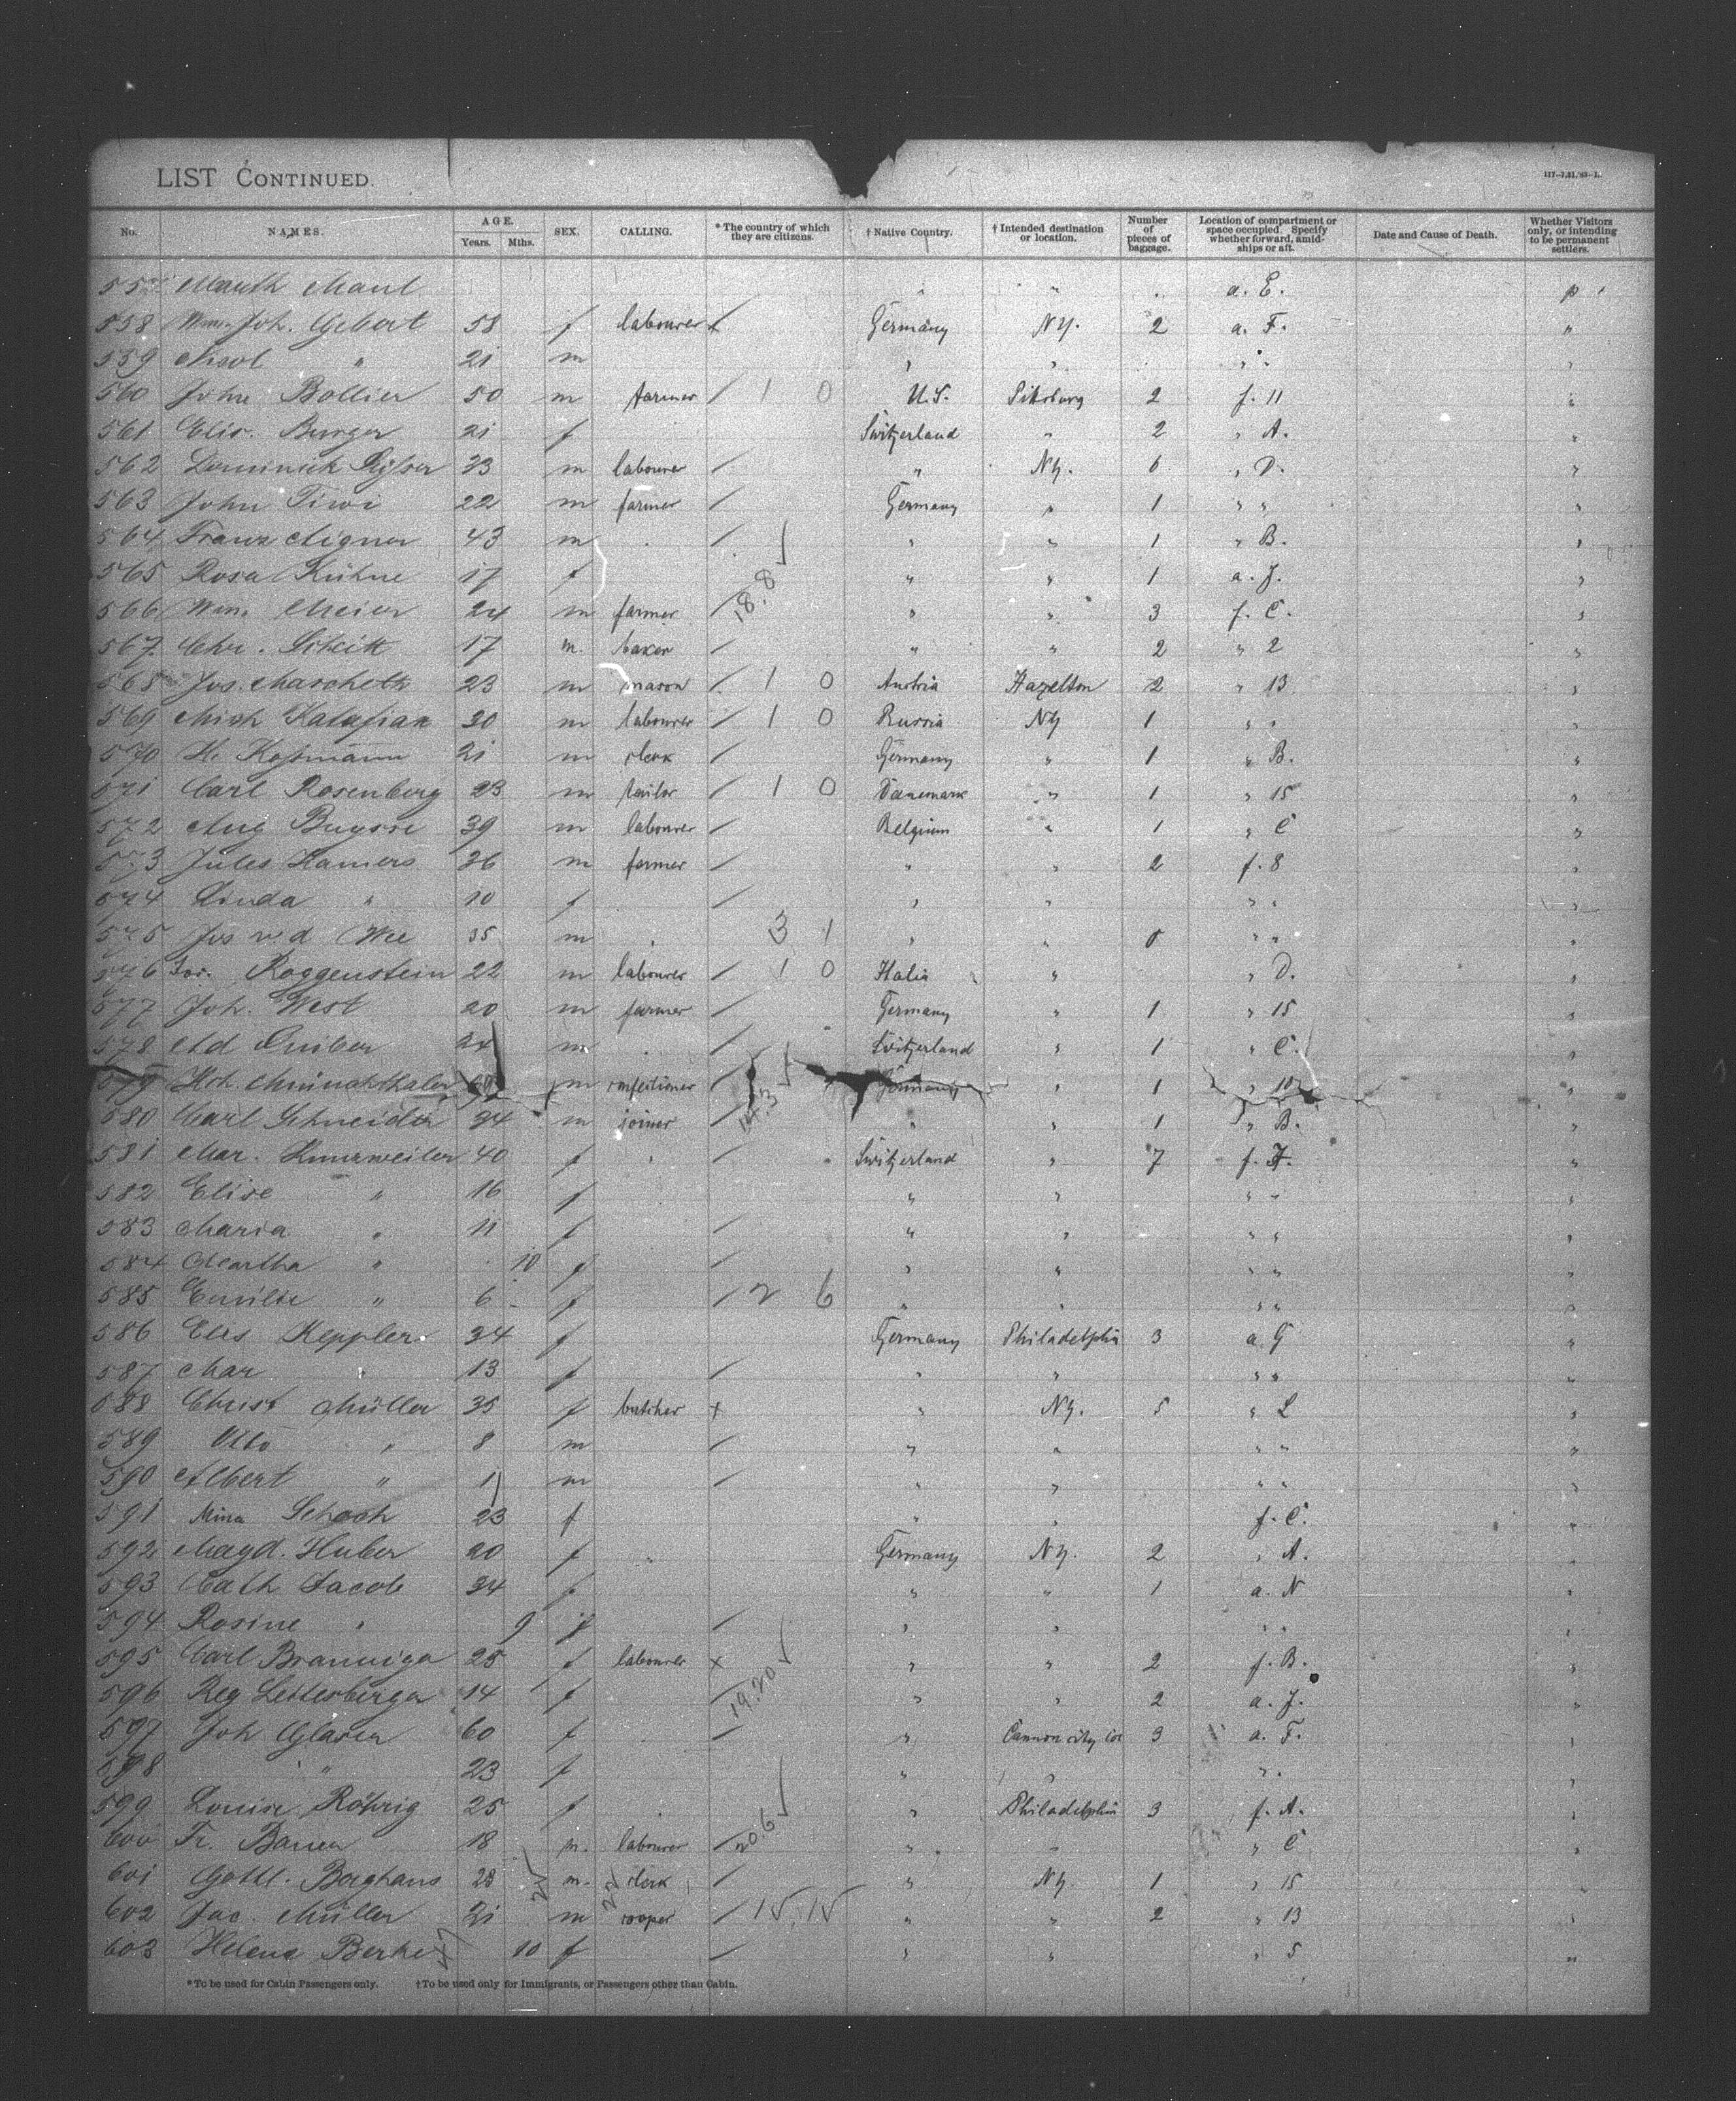 LIST CONTINUED.
117-7,21,'93-L.
No. NAMES. AGE. Years. Mths. SEX. CALLING. * The country of which they are citizens. † Native Country. † Intended destination or location. Number of pieces of baggage. Location of compartment or space occupied. Specify whether forward, amidships or aft. Date and Cause of Death. Whether Visitors only, or intending to be permanent settlers.
" " " a. E. p
558 Wm. Joh. Gebert 58 f labourer Germany NY. 2 a. F. "
559 " 21 m " " " " "
560 John Bollier 50 m farmer / 1 0 U.S. Pittsburg 2 f. 11 "
561 Elis. Burger 21 f Switzerland " 2 " A. "
562 Dominick 23 m labourer / " NY. 6 " D. "
563 John Tiwi 22 m farmer / Germany " 1 " " "
564 Franz Aigner 43 m " / " " 1 " B. "
565 Rosa Kühne 17 f " " 1 a. J. "
566 Wm. Meier 24 m farmer / 18.8 √ " " 3 f. C. "
567 Chr. 17 m. baker / " " 2 " 2 "
568 Jos. 23 m mason / 1 0 Austria Hazelton 2 " 13 "
569 Mich Kalafian 20 m labourer / 1 0 Russia NY 1 " " "
570 H. Hofmann 21 m clerk / Germany " 1 " B. "
571 Carl Rosenberg 23 m tailor / 1 0 Daenemark " 1 " 15 "
572 Aug Buysse 39 m labourer / Belgium " 1 " C "
573 Jules Hamers 26 m farmer / " " 2 f. 8 "
574 Linda " 10 f / " " " " "
575 Jos v. d Wee 35 m " 3 1 " " " " "
576 Jos. Roggenstein 22 m labourer / 1 0 Italia " " D. "
577 Joh. West 20 m farmer / Germany " 1 " 15 "
578 Ad 24 m " / Switzerland " 1 " C. "
579 m confectioner / Germany " 1 " 10 "
580 Carl Schneider 24 m joiner / 14.3 √ " " 1 " B. "
581 Mar. 40 f " / Switzerland " 7 f. "
582 Elise " 16 f " " " " "
583 Maria " 11 f / " " " " "
584 Martha " 10 f / " " " " "
585 Emilie " 6 f / 2 6 " " " " "
586 Elis Keppler 34 f Germany Philadelphia 3 a. G "
587 Mar " 13 f / " " " " "
588 Christ Müller 35 f butcher x " NY. 5 " L "
589 Otto " 8 m / " " " " "
590 Albert " 11 m / " " " " "
591 Mina Schoch 23 f " " f. C. "
592 Magd. Huber 20 f " Germany NY. 2 " A. "
593 Cath Jacob 24 f " " 1 a. N "
594 Rosine " 9 f / " " " " "
595 Carl 25 f labourer x " " 2 f. B. "
596 Reg 14 f / 19.20 √ " " 2 a. J. "
597 Joh Glaser 60 f / " Cannon city Col 3 a. F. "
598 " 23 f " " " "
599 Louise Röhrig 25 f " " Philadelphia 3 f. A. "
600 Fr. Bauer 18 m. labourer / 20.6 √ " " " C "
601 Gottl. Berghaus 28 m. clerk / " NY. 1 " 15 "
602 Jac. Müller 21 m cooper / " " 2 " 13 "
603 Helene Berke 10 f / " " " 5 "
* To be used for Cabin Passengers only. † To be used only for Immigrants, or Passengers other than Cabin.